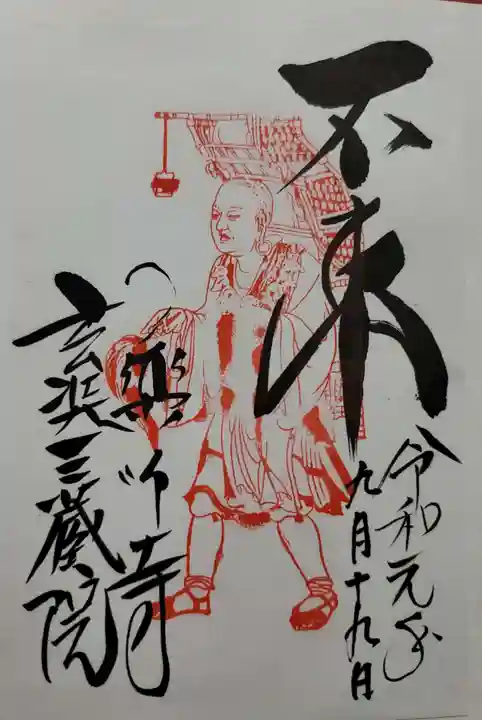 不東
令和元年
九月十九日
薬師寺
玄奘三蔵院